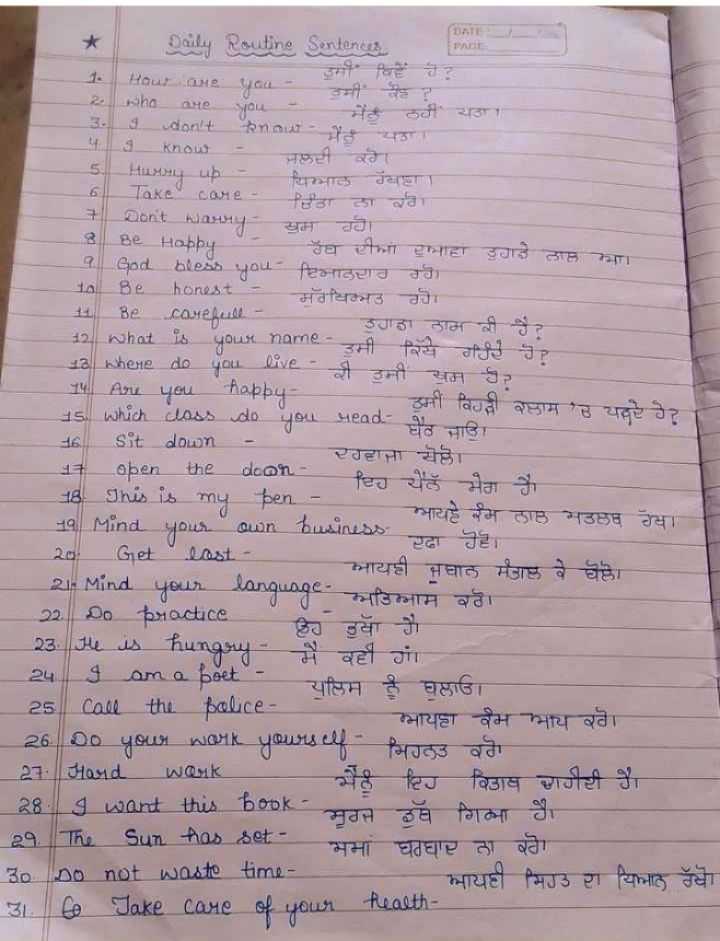 ★ Daily Routine Sentences
DATE: / /
PAGE
1. How are you - ਤੁਸੀਂ ਕਿਵੇਂ ਹੋ?
2. who are you - ਤੁਸੀਂ ਕੌਣ?
3. I don't know - ਮੈਂਨੂੰ ਨਹੀਂ ਪਤਾ।
4. I know - ਮੈਂਨੂੰ ਪਤਾ।
5. Hurry up - ਜਲਦੀ ਕਰੋ।
6. Take care - ਧਿਆਨ ਰੱਖਣਾ।
7 Don't warry - ਚਿੰਤਾ ਨਾ ਕਰੋ।
8 Be Happy - ਖੁਸ਼ ਰਹੋ।
9. God bless you - ਰੱਬ ਦੀਆਂ ਦੁਆਵਾਂ ਤੁਹਾਡੇ ਨਾਲ ਆ।
10 Be honest - ਇਮਾਨਦਾਰ ਰਹੋ।
11 Be carefull - ਰਹੋ।
12 What is your name - ਤੁਹਾਡਾ ਨਾਮ ਕੀ ਹੈ?
13 where do you live - ਤੁਸੀ ਕਿੱਥੇ ਰਹਿੰਦੇ ਹੋ?
14 Are you happy - ਕੀ ਤੁਸੀਂ ਖੁਸ਼ ਹੋ?
15 which class do you read - ਤੁਸੀ ਕਿਹੜੀ ਕਲਾਸ 'ਚ ਪੜ੍ਹਦੇ ਹੋ?
16 Sit down - ਬੈਠ ਜਾਓ।
17 open the door - ਦਰਵਾਜਾ ਖੋਲੋ।
18 This is my pen - ਇਹ ਪੈੱਨ ਮੇਰਾ ਹੈ।
19 Mind your own business. ਆਪਣੇ ਕੰਮ ਨਾਲ ਮਤਲਬ ਰੱਖ।
20 Get last - ਦਫਾ ਹੋਵੋ।
21. Mind your language - ਆਪਣੀ ਜੁਬਾਨ ਸੰਭਾਲ ਕੇ ਬੋਲੋ।
22. Do practice - ਅਭਿਆਸ ਕਰੋ।
23. He is hungry - ਉਹ ਭੁੱਖਾ ਹੈ।
24 I am a poet - ਮੈਂ ਕਵੀ ਹਾਂ।
25 Call the police - ਪੁਲਿਸ ਨੂੰ ਬੁਲਾਓ।
26. Do your work yourself - ਆਪਣਾ ਕੰਮ ਆਪ ਕਰੋ।
27. Hard work ਮਿਹਨਤ ਕਰੋ
28. I want this book - ਮੈਂਨੂੰ ਇਹ ਕਿਤਾਬ ਚਾਹੀਦੀ ਹੈ।
29. The Sun has set - ਸੂਰਜ ਡੁੱਬ ਗਿਆ ਹੈ।
30 Do not waste time - ਸਮਾਂ ਬਰਬਾਦ ਨਾ ਕਰੋ।
31. Take care of your health - ਆਪਣੀ ਸਿਹਤ ਦਾ ਧਿਆਨ ਰੱਖੋ।